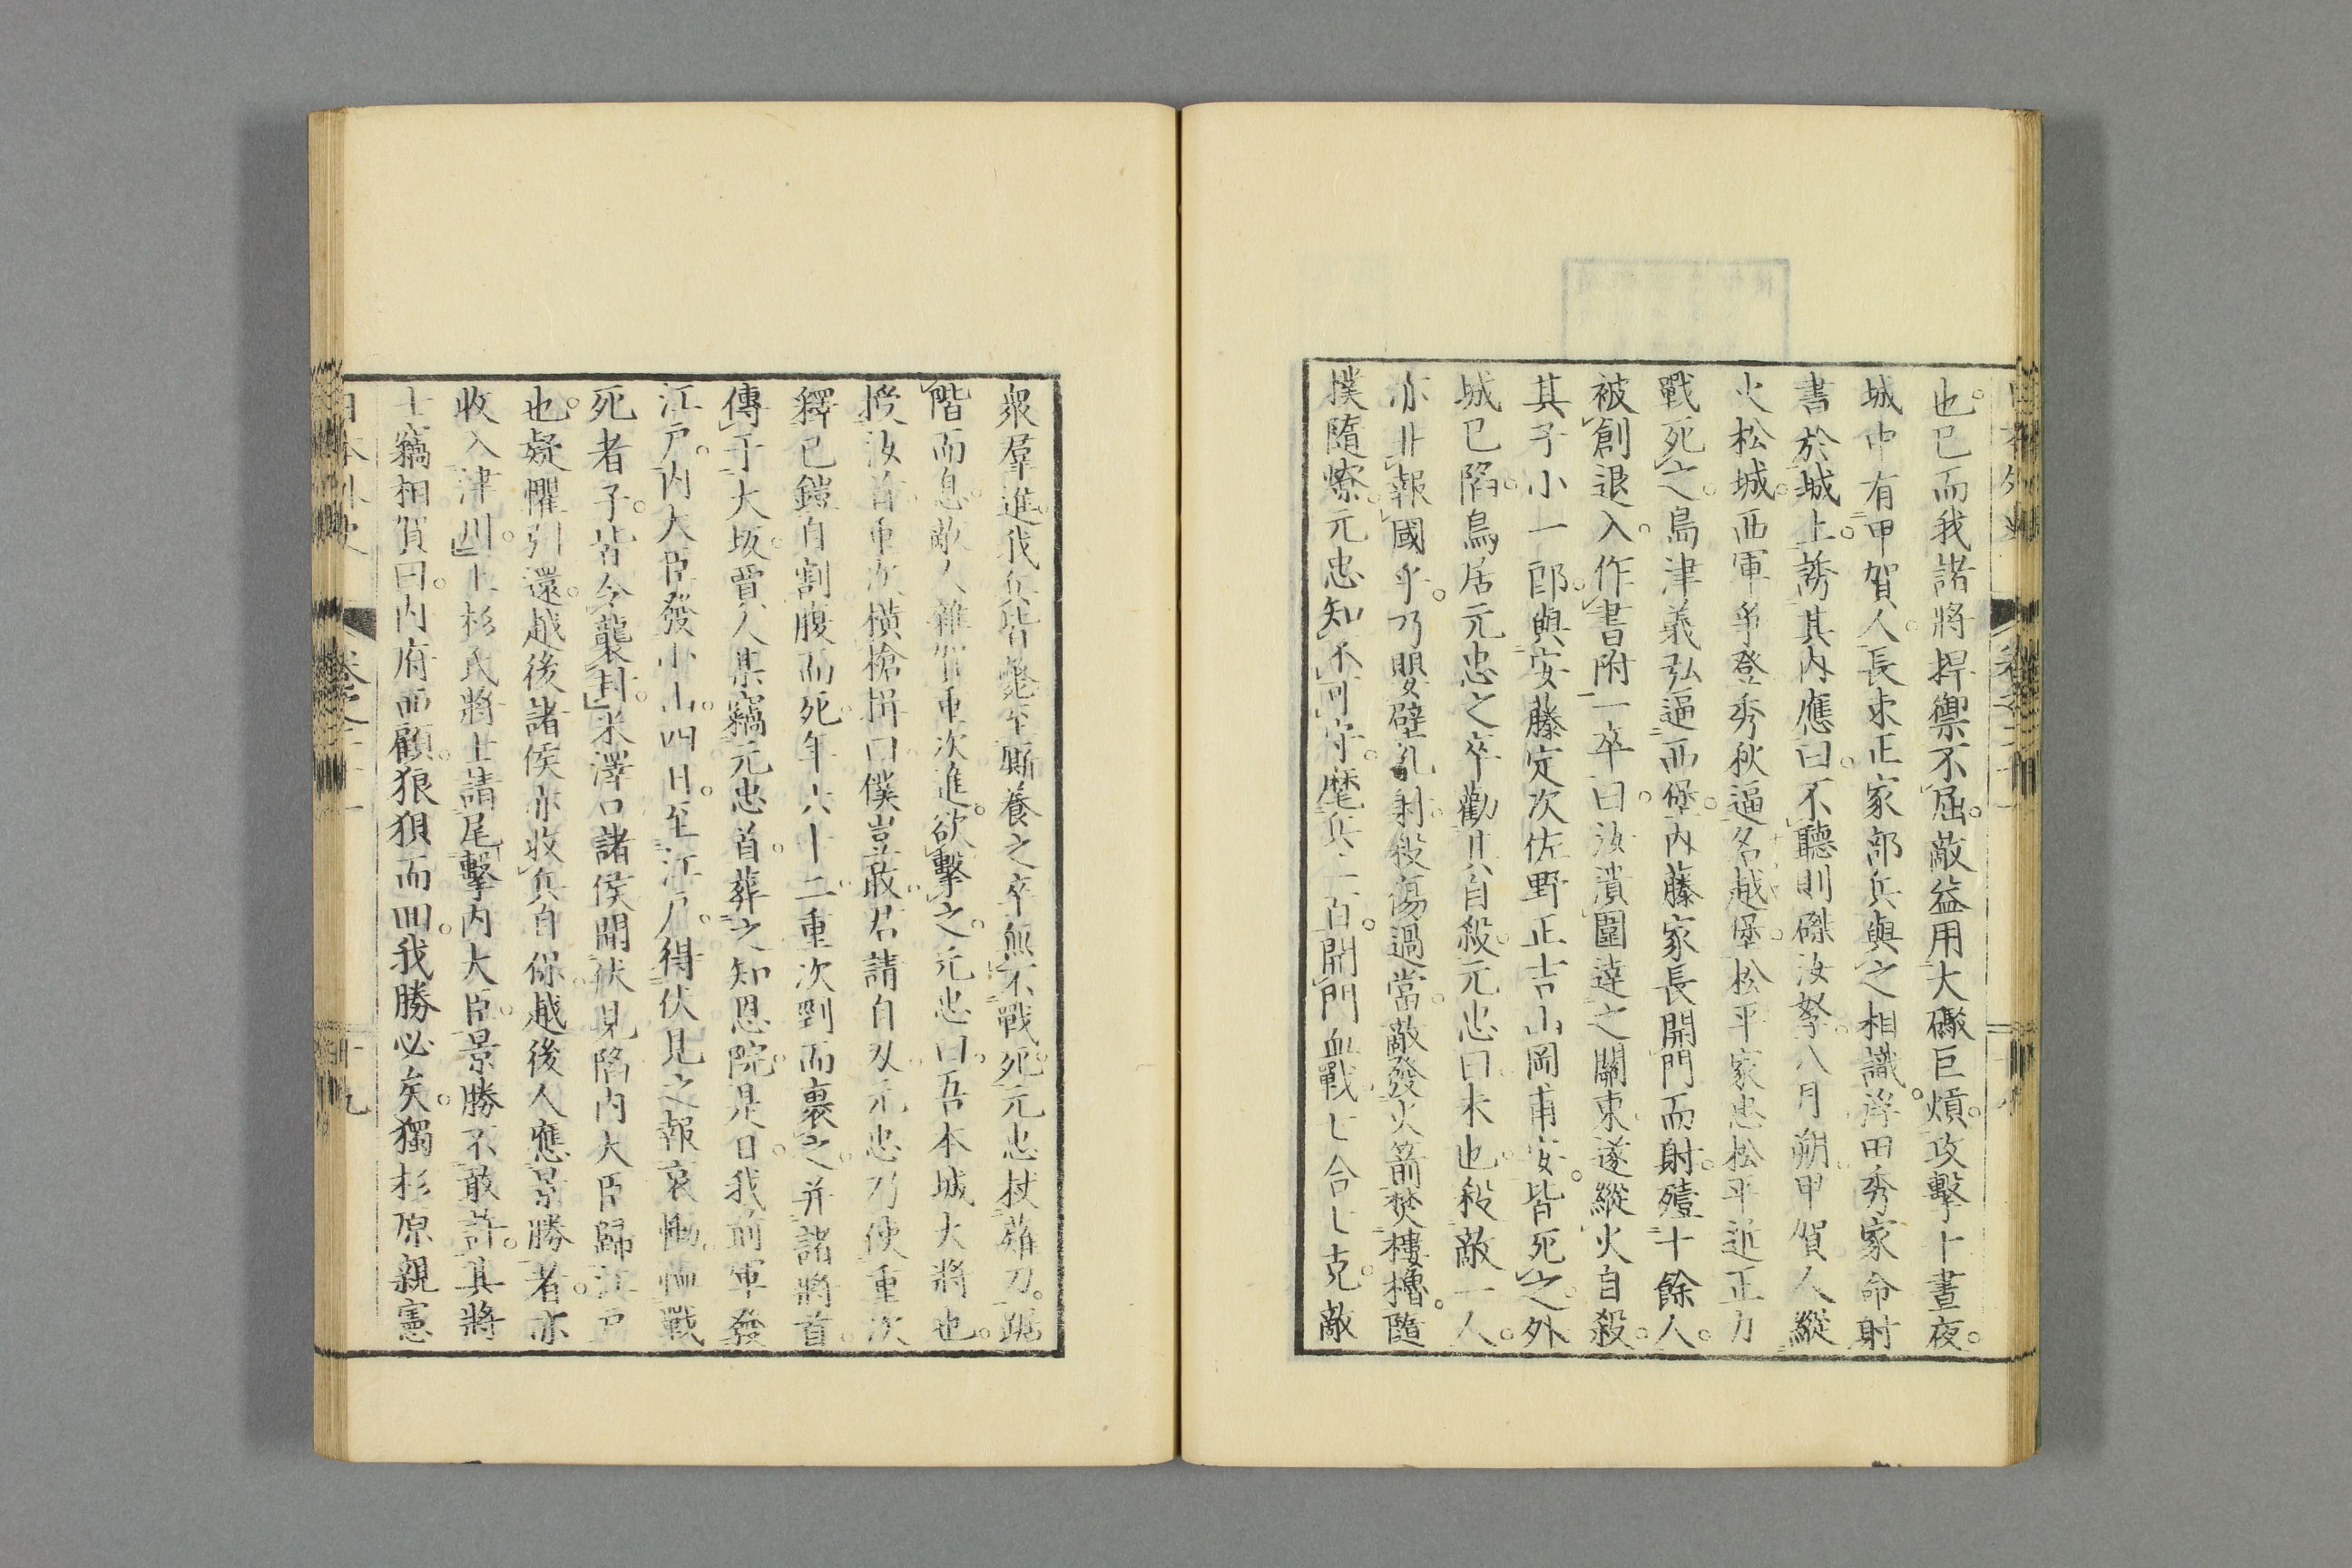 也已而我諸將捍禦不屈敵益用大礮巨熕攻擊十晝夜
城中有甲賀人長束正家部兵與之相識浮田秀家命射
書於城上誘其內應曰不聽則磔汝孥八月朔甲賀人縱
火松城西軍爭登秀秋逼名越堡松平家忠松平近正力
戰死之島津義弘逼西堡內藤家長開門而射殪十餘人
被創退入作書附一卒曰汝潰圍達之關東遂縱火自殺
其子小一郎與安藤定次佐野正吉山岡甫安皆死之外
城已陷鳥居元忠之卒勸其自殺元忠曰未也殺敵一人
亦非報國乎乃嬰壁亂射殺傷過當敵發火箭焚樓櫓隨
撲隨燎元忠知不可守麾兵二百開門血戰七合七克敵
眾羣進我兵皆斃至廝養之卒無不戰死元忠杖薙刀踞
階而息敵人雜賀重次進欲擊之元忠曰吾本城大將也
授汝首重次橫槍揖曰僕豈敢君請自殺元忠乃使重次
釋已鎧自割腹而死年六十二重次剄而裹之并諸將首
傳于大坂賈人某竊元忠首葬之知恩院是日我前軍發
江戶內大臣發小山四日至江戶得伏見之報哀慟恤戰
死者子皆令襲封米澤口諸侯聞伏見陷內大臣歸江戶
也疑懼引還越後諸侯亦收兵自保越後人應景勝者亦
收入津川上杉氏將士請尾擊內大臣景勝不敢許其將
士竊相賀曰內府西顧狼狽而回我勝必矣獨杉原親憲
日本外史 卷之二十一 十九